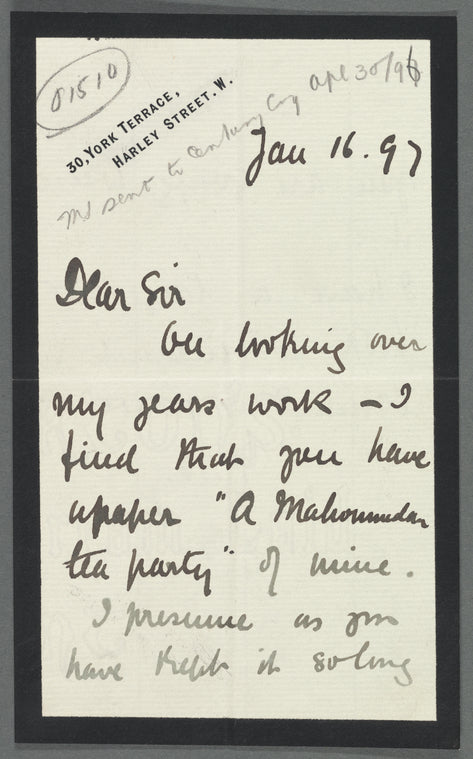 01510
30, YORK TERRACE,
HARLEY STREET. W.
Ms sent to Century Coy apl 30/96
Jan 16. 97
Dear Sir
On looking over
my years work – I
find that you have
a paper "A Mahommedan
tea party" of mine.
I presume as you
have kept it so long